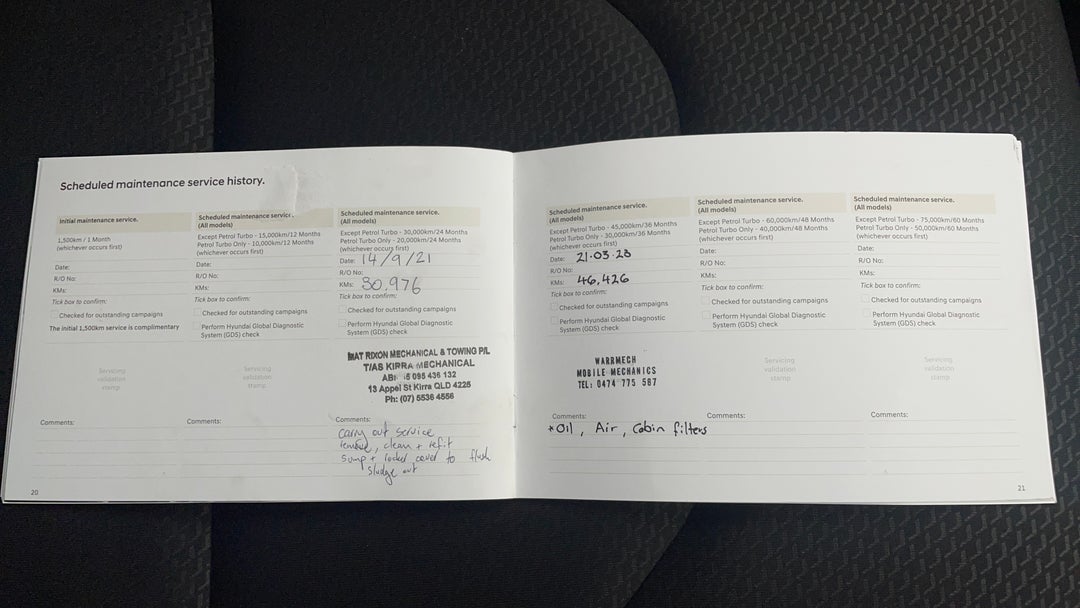 Scheduled maintenance service history.
Initial maintenance service.
1,500km / 1 Month
(whichever occurs first)
Date:
R/O No:
KMs:
Tick box to confirm:
Checked for outstanding campaigns
The initial 1,500km service is complimentary
Servicing
validation
stamp
Comments:
20
Scheduled maintenance service.
(All models)
Except Petrol Turbo - 15,000km/12 Months
Petrol Turbo Only - 10,000km/12 Months
(whichever occurs first)
Date:
R/O No:
KMs:
Tick box to confirm:
Checked for outstanding campaigns
Perform Hyundai Global Diagnostic
System (GDS) check
Servicing
validation
stamp
Comments:
Scheduled maintenance service.
(All models)
Except Petrol Turbo - 30,000km/24 Months
Petrol Turbo Only - 20,000km/24 Months
(whichever occurs first)
Date: 14/9/21
R/O No:
KMs: 30,976
Tick box to confirm:
Checked for outstanding campaigns
Perform Hyundai Global Diagnostic
System (GDS) check
MAT RIXON MECHANICAL & TOWING P/L
T/AS KIRRA MECHANICAL
5 095 436 132
13 Appel St Kirra QLD 4225
Ph: (07) 5536 4556
Comments:
carry out service
remove, clean + refit
sump + rocker cover to flush
sludge out
Scheduled maintenance service.
(All models)
Except Petrol Turbo - 45,000km/36 Months
Petrol Turbo Only - 30,000km/36 Months
(whichever occurs first)
Date: 21·03·23
R/O No:
KMs: 46,426
Tick box to confirm:
Checked for outstanding campaigns
Perform Hyundai Global Diagnostic
System (GDS) check
WARRMECH
MOBILE MECHANICS
TEL: 0474 775 587
Comments:
*Oil, Air, Cabin filters
Scheduled maintenance service.
(All models)
Except Petrol Turbo - 60,000km/48 Months
Petrol Turbo Only - 40,000km/48 Months
(whichever occurs first)
Date:
R/O No:
KMs:
Tick box to confirm:
Checked for outstanding campaigns
Perform Hyundai Global Diagnostic
System (GDS) check
Servicing
validation
stamp
Comments:
Scheduled maintenance service.
(All models)
Except Petrol Turbo - 75,000km/60 Months
Petrol Turbo Only - 50,000km/60 Months
(whichever occurs first)
Date:
R/O No:
KMs:
Tick box to confirm:
Checked for outstanding campaigns
Perform Hyundai Global Diagnostic
System (GDS) check
Servicing
validation
stamp
Comments:
21